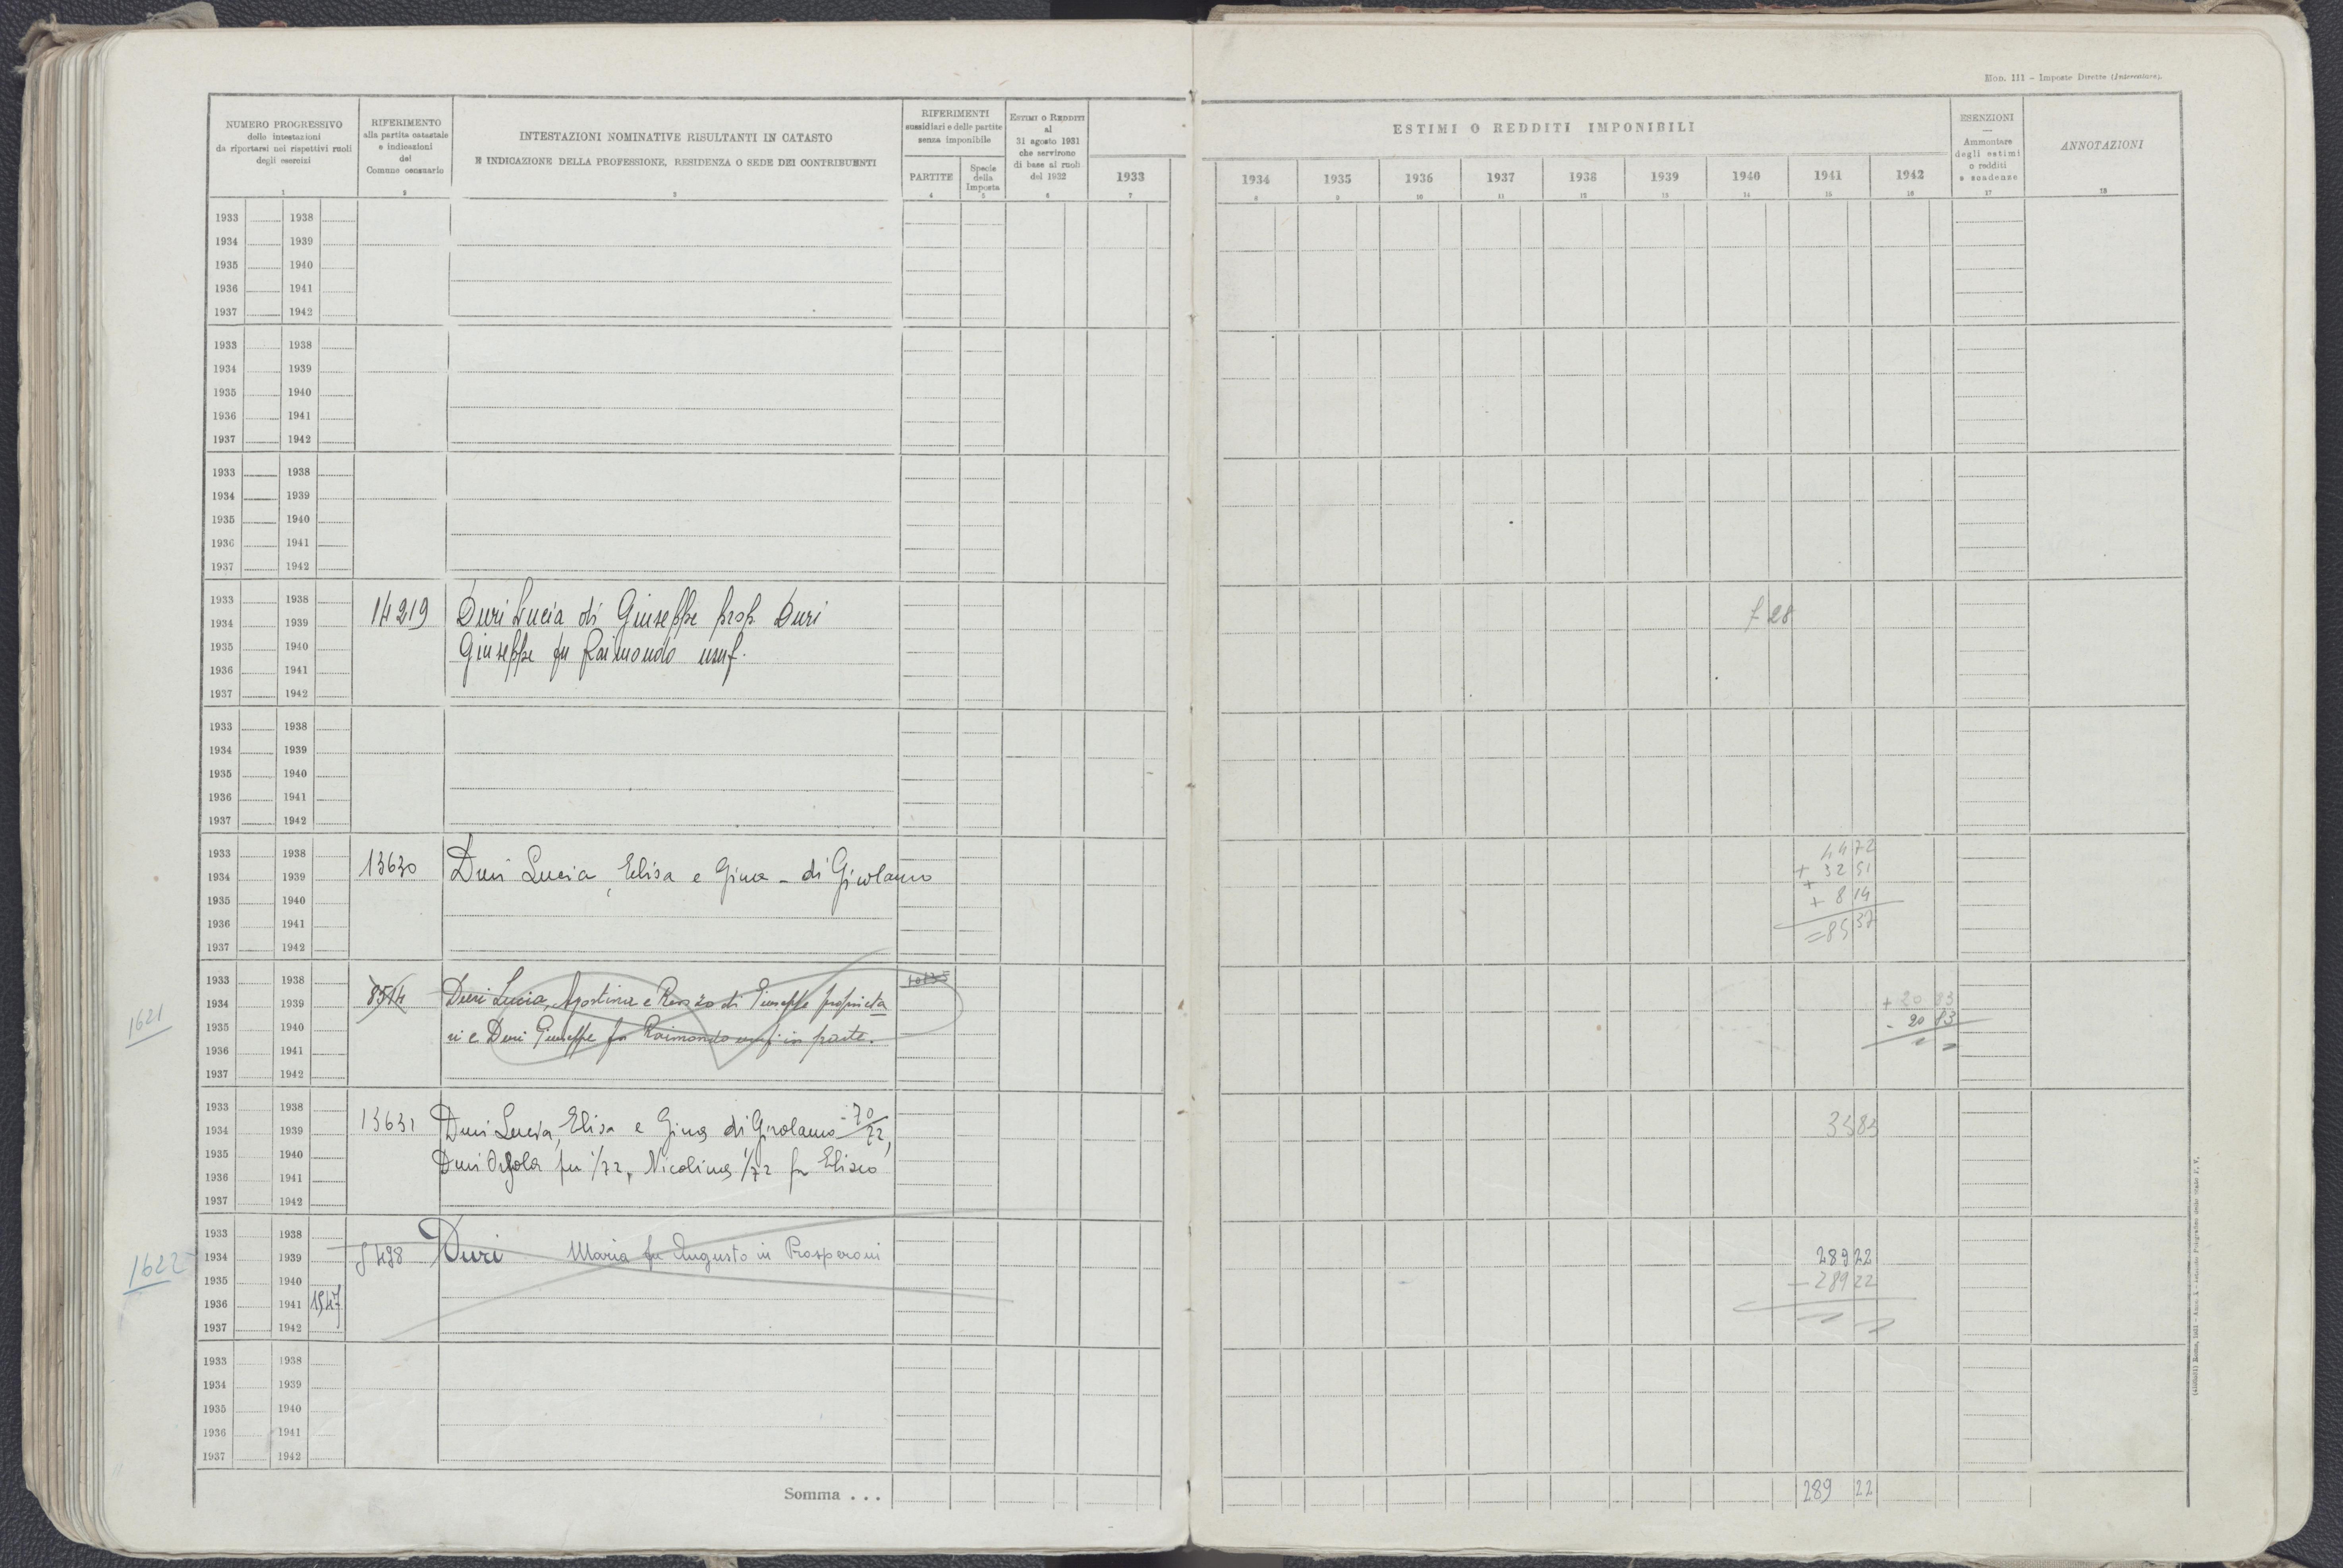 Mod. 111 - Imposte Dirette (Intercalare).
NUMERO PROGRESSIVO
delle intestazioni
da riportarsi nei rispettivi ruoli
degli esercizi
1
RIFERIMENTO
alla partita catastale
e indicazioni
del
Comune censuario
2
INTESTAZIONI NOMINATIVE RISULTANTI IN CATASTO
E INDICAZIONE DELLA PROFESSIONE, RESIDENZA O SEDE DEI CONTRIBUENTI
3
RIFERIMENTI
sussidiari e delle partite
senza imponibile
PARTITE
4
Specie
della
Imposta
5
ESTIMI O REDDITI
al
31 agosto 1931
che servirono
di base ai ruoli
del 1932
6
1933
7
ESTIMI O REDDITI IMPONIBILI
1934 1935 1936 1937 1938 1939 1940 1941 1942
8 9 10 11 12 13 14 15 16
ESENZIONI
—
Ammontare
degli estimi
o redditi
e scadenze
17
ANNOTAZIONI
18
1933 1938
1934 1939
1935 1940
1936 1941
1937 1942
1933 1938
1934 1939
1935 1940
1936 1941
1937 1942
1933 1938
1934 1939
1935 1940
1936 1941
1937 1942
1933 1938
1934 1939 14219 Duri Lucia di Giuseppe prop. Duri 7 28
1935 1940 Giuseppe fu Raimondo usuf.
1936 1941
1937 1942
1933 1938
1934 1939
1935 1940
1936 1941
1937 1942
1933 1938 44 72
1934 1939 13630 Duri Lucia, Elisa e Gina - di Girolamo + 32 51
1935 1940 + 8 14
1936 1941 = 85 37
1937 1942
1933 1938
1934 1939 8514 Duri Lucia, Agostina e Renzo di Giuseppe proprieta + 20 83
1621
1935 1940 ri e Duri Giuseppe fu Raimondo usuf in parte. - 20 83
1936 1941
1937 1942
1933 1938
1934 1939 13631 Duri Lucia, Elisa e Gina di Girolamo - 70/72, 35 83
1935 1940 Duri fu 1/72, Nicolina 1/72 fu Eliseo
1936 1941
1937 1942
1933 1938
1622 1934 1939 5498 Duri Maria fu Augusto in Prosperoni 289 22
1935 1940 - 289 22
1936 1941 1547
1937 1942
1933 1938
1934 1939
1935 1940
1936 1941
1937 1942
Somma . . . 289 22